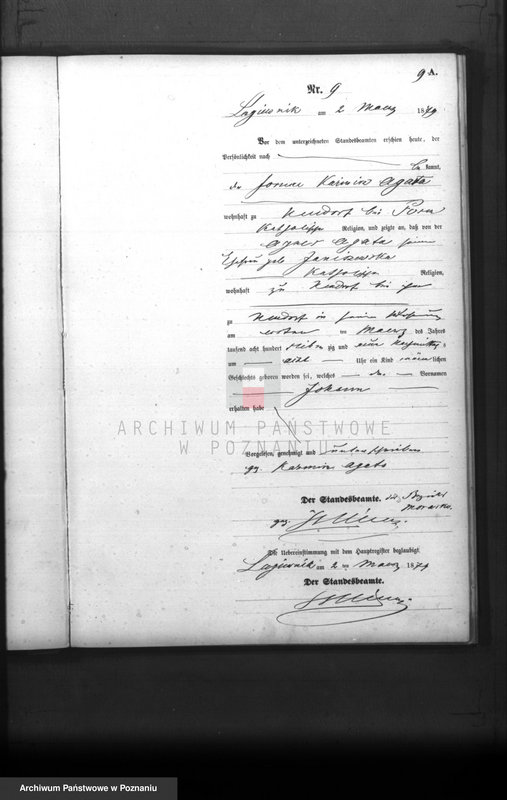 9 A.
Nr. 9
Lagiewnik am 2 Maerz 1879
Vor dem unterzeichneten Standesbeamten erschien heute, der
Persönlichkeit nach
be kannt,
der Kasimir Agata
wohnhaft zu Neudorf bei
katholischer Religion, und zeigte an, daß von der
Agnes Agata seine
Ehefrau geb.
katholischer Religion,
wohnhaft zu Neudorf bei
zu Neudorf in seine Wohnung
am ersten ten Maerz des Jahres
tausend acht hundert sieben zig und neun Vormittags
um acht Uhr ein Kind männlichen
Geschlechts geboren worden sei, welches den Vornamen
Johann
erhalten habe
ARCHIWUM PAŃSTWOWE
W POZNANIU
Vorgelesen, genehmigt und unterschrieben
gez. Kasimir Agata
Der Standesbeamte. des Bezirks
Morasko.
gez.
Die Uebereinstimmung mit dem Hauptregister beglaubigt
Lagiewnik am 2 ten Maerz 1879
Der Standesbeamte.
Archiwum Państwowe w Poznaniu